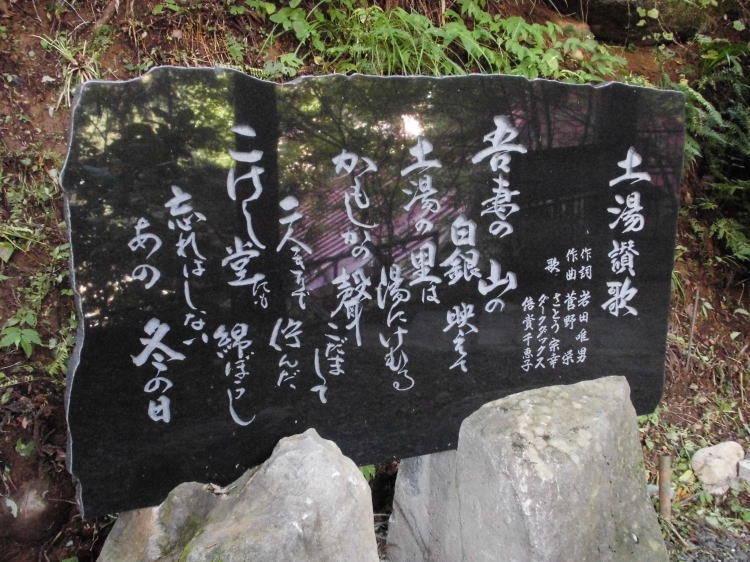 土湯讃歌
作詞 岩田唯男
作曲 菅野 栄
歌 さとう宗幸
ダークダックス
倍賞千恵子
吾妻の山の
白銀映えて
土湯の里は
湯にけむる
かもしかの聲
こだまして
二人きりで
佇んだ
こけし堂にも
綿ぼうし
忘れはしない
あの冬の日